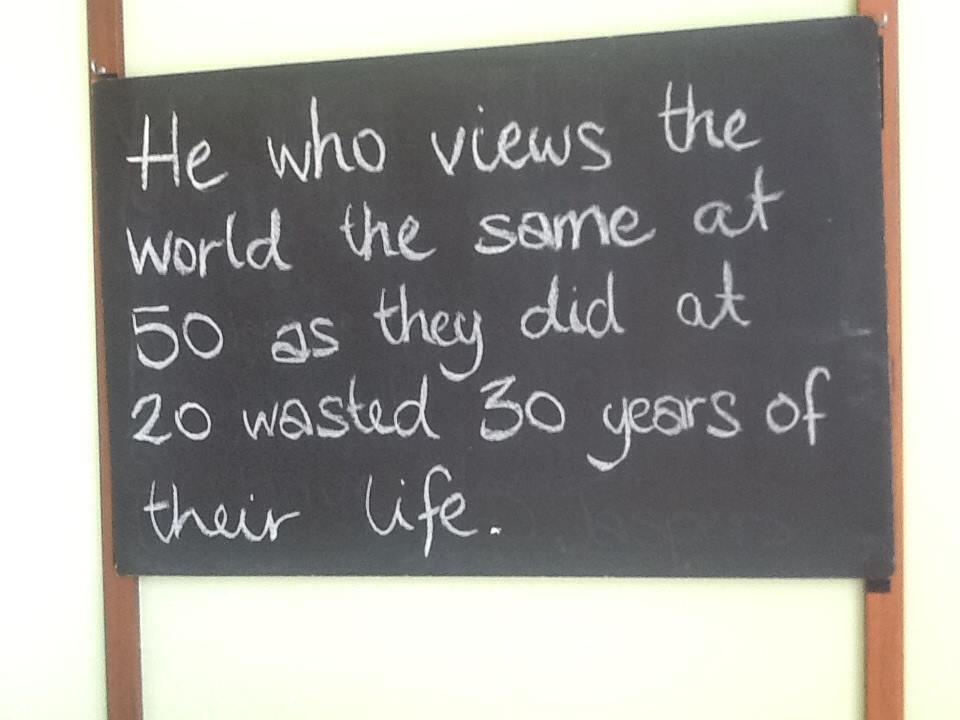 He who views the
world the same at
50 as they did at
20 wasted 30 years of
their life.